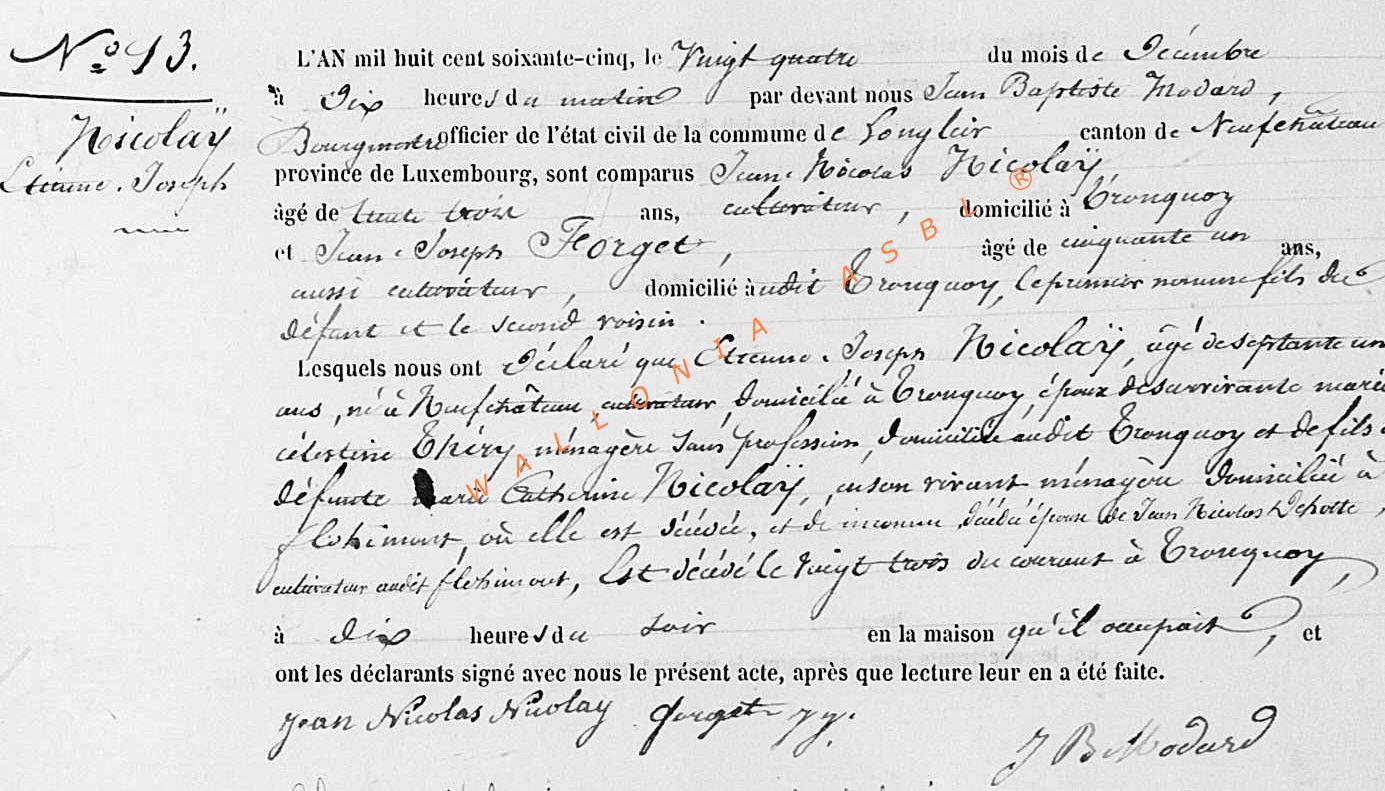 N.o 93.
Nicolaÿ
Etienne-Joseph
L'AN mil huit cent soixante-cinq, le Vingt quatre du mois de Décembre
à Dix heures du matin par devant nous Jean Baptiste Modard,
Bourgmestre officier de l'état civil de la commune de Longlier canton de Neufchâteau
province de Luxembourg, sont comparus Jean-Nicolas Nicolaÿ
âgé de trente trois ans, cultivateur, domicilié à Tronquoy
et Jean-Joseph Forget, âgé de cinquante un ans,
aussi cultivateur, domicilié audit Tronquoy, le premier nommé fils du
défunt et le second voisin.
Lesquels nous ont Déclaré que Etienne-Joseph Nicolaÿ, âgé de septante un
ans, né à Neufchâteau, cultivateur, domicilié à Tronquoy, époux de survivante marie
célestine Thiry, ménagère sans profession, domiciliée audit Tronquoy et de fils
défunte marie Catherine Nicolaÿ, en son vivant ménagère domiciliée à
flohimont, où elle est décédée, et de inconnu, décédée épouse de Jean Nicolas
cultivateur audit flohimont, Est décédé le vingt trois du courant à Tronquoy,
à dix heures du soir en la maison qu'il occupait, et
ont les déclarants signé avec nous le présent acte, après que lecture leur en a été faite.
Jean Nicolas Nicolay forget jj.
J B Modard
WALLONIA ASBL ®